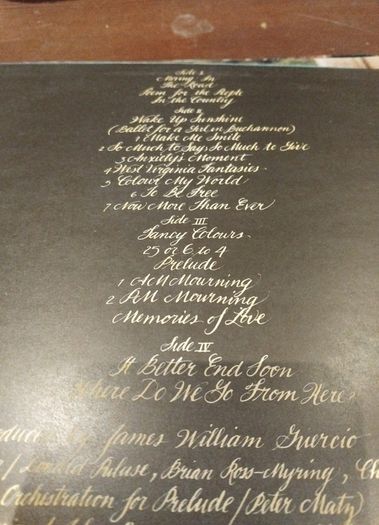 Side I
Moving In
The Road
Poem for the People
In the Country
Side II
Wake Up Sunshine
(Ballet for a Girl in Buchannon)
1 Make Me Smile
2 So Much to Say, So Much to Give
3 Anxiety's Moment
4 West Virginia Fantasies
5 Colour My World
6 To Be Free
7 Now More Than Ever
Side III
Fancy Colours
25 or 6 to 4
Prelude
1 AM Mourning
2 PM Mourning
Memories of Love
Side IV
It Better End Soon
Where Do We Go From Here?
by James William Guercio
/ Donald Puluse, Brian Ross-Myring, Ch
Orchestration for Prelude / Peter Matz)